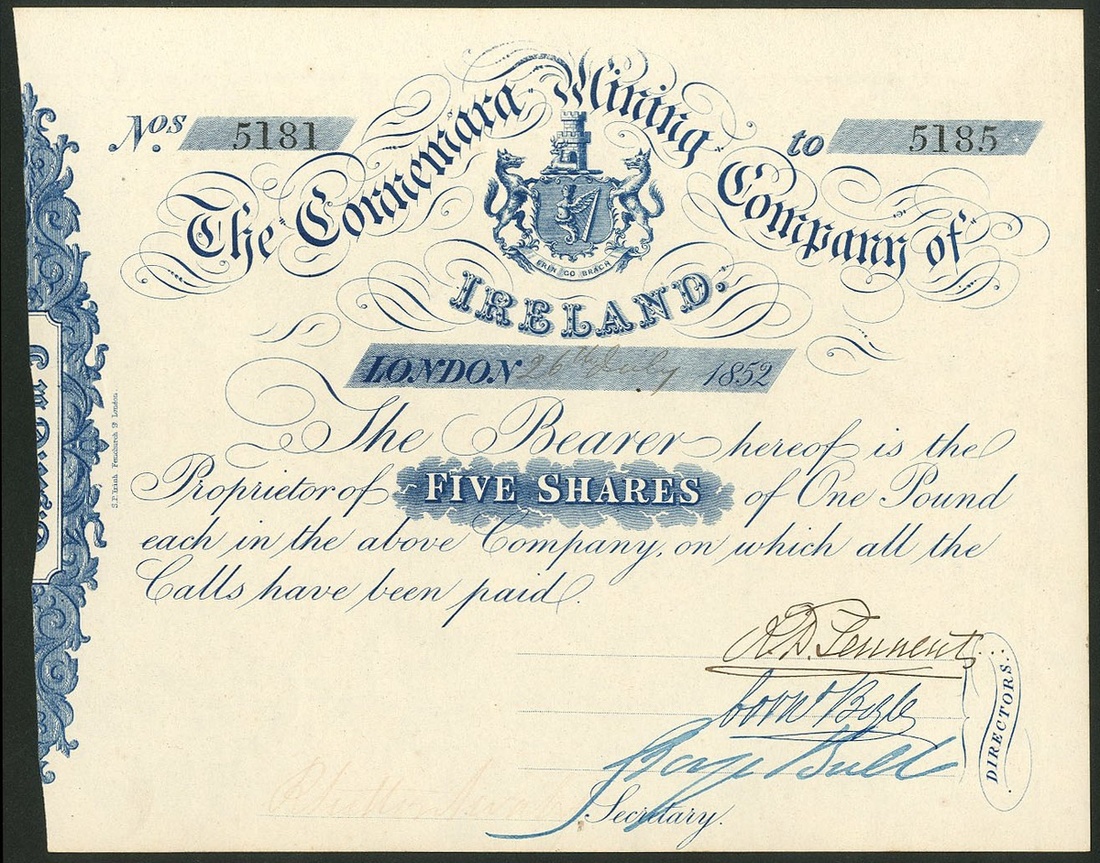 Nos. 5181 to 5185
The Connemara Mining Company of
ERIN GO BRACH
IRELAND.
LONDON 26th July 1852
The Bearer hereof is the
Proprietor of FIVE SHARES of One Pound
each in the above Company, on which all the
Calls have been paid.
R. D. Tennent
DIRECTORS.
George Bull
Secretary.
S.P. Irish Fenchurch St. London.